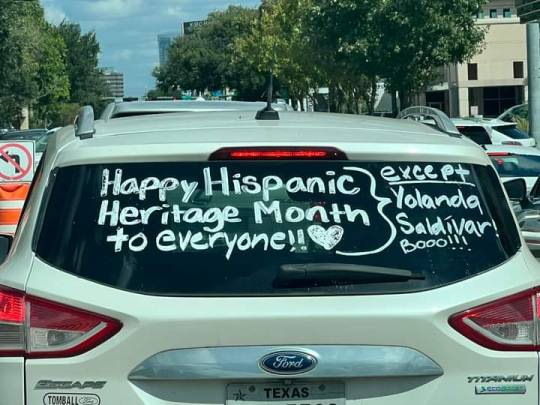 Happy Hispanic
Heritage Month
to everyone!!
except
Yolanda
Saldívar!
Booo!!!
Ford
ESCAPE
TITANIUM
TOMBALL
TEXAS